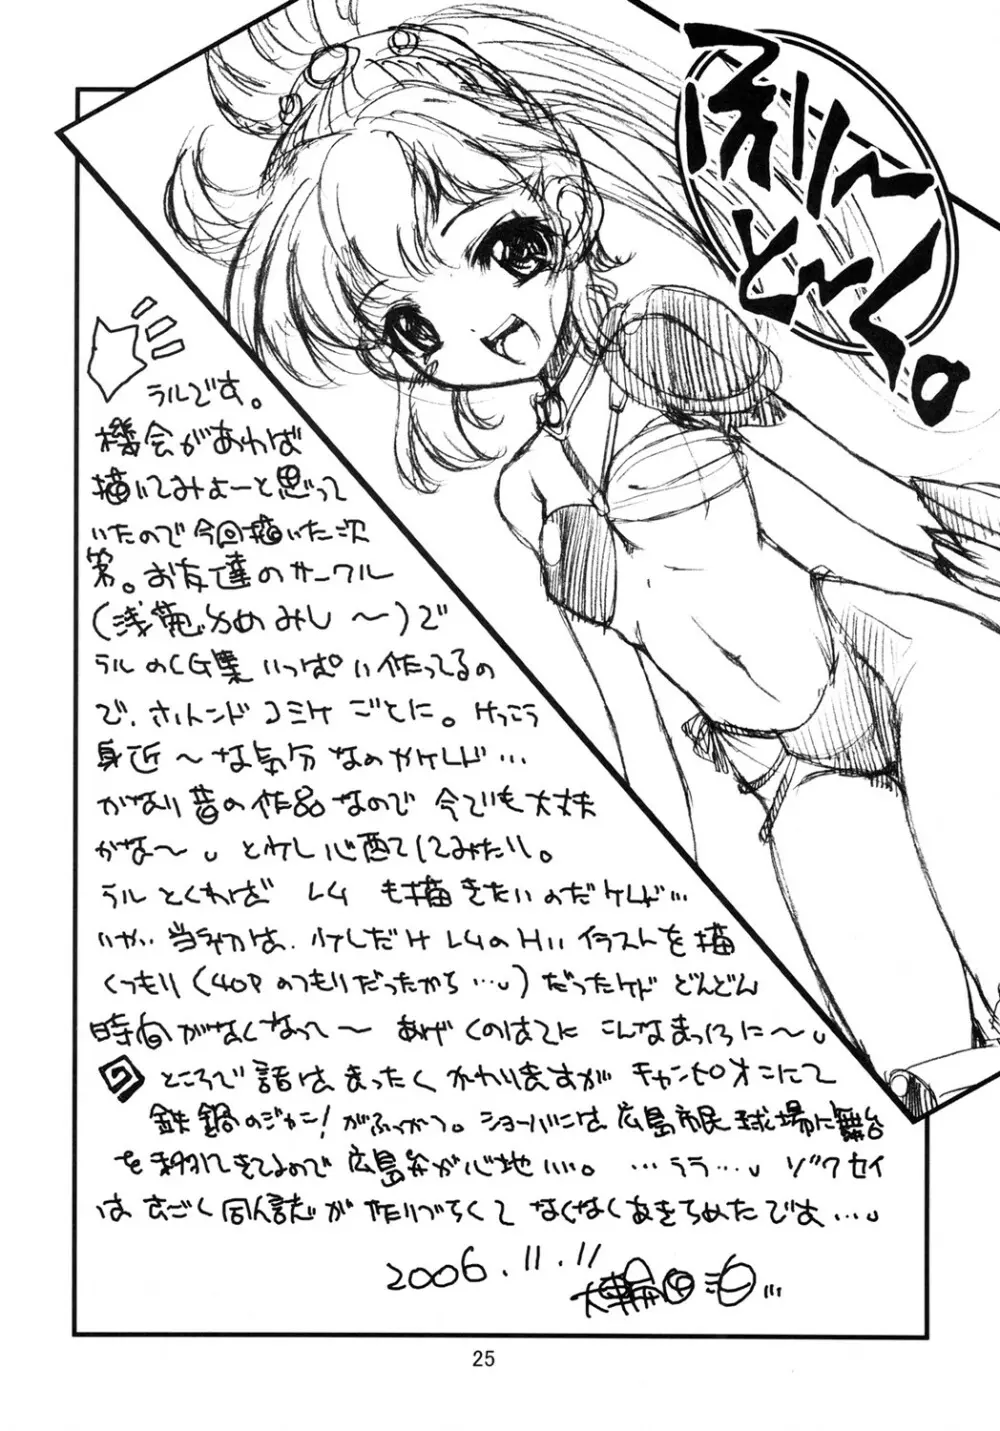 ふりーとーく。
ラルです。
機会があれば
描いてみよーと思って
いたので今回描いた次
第。お友達のサークル
(浅葱かめみし〜)で
ラルのCG集いっぱい作ってるの
で、ホントンドコミケごとに。けっこう
身近〜な気分なのやけレド…
かなり昔の作品なので今でも大丈夫
かな〜。と少し心配してみたり。
ラルとくればレムも描きたいのだケレド…
いや、当初は、少しだけレムのHいイラストを描
くつもり(40Pのつもりだったから…)だったケド どんどん
時間がなくなって〜 あげくのはてに こんなまっ2に〜
ところで話はまったくかわりますがチャンピオンにて
鉄鍋のジャン!がふっかつ。ショーバンは広島市民球場に舞台
を移してきてるので広島弁が心地いい。…うう… ゾクセイ
はすごく同人誌が作りづらくてなくなくあきらめたです…
2006.11.11
25